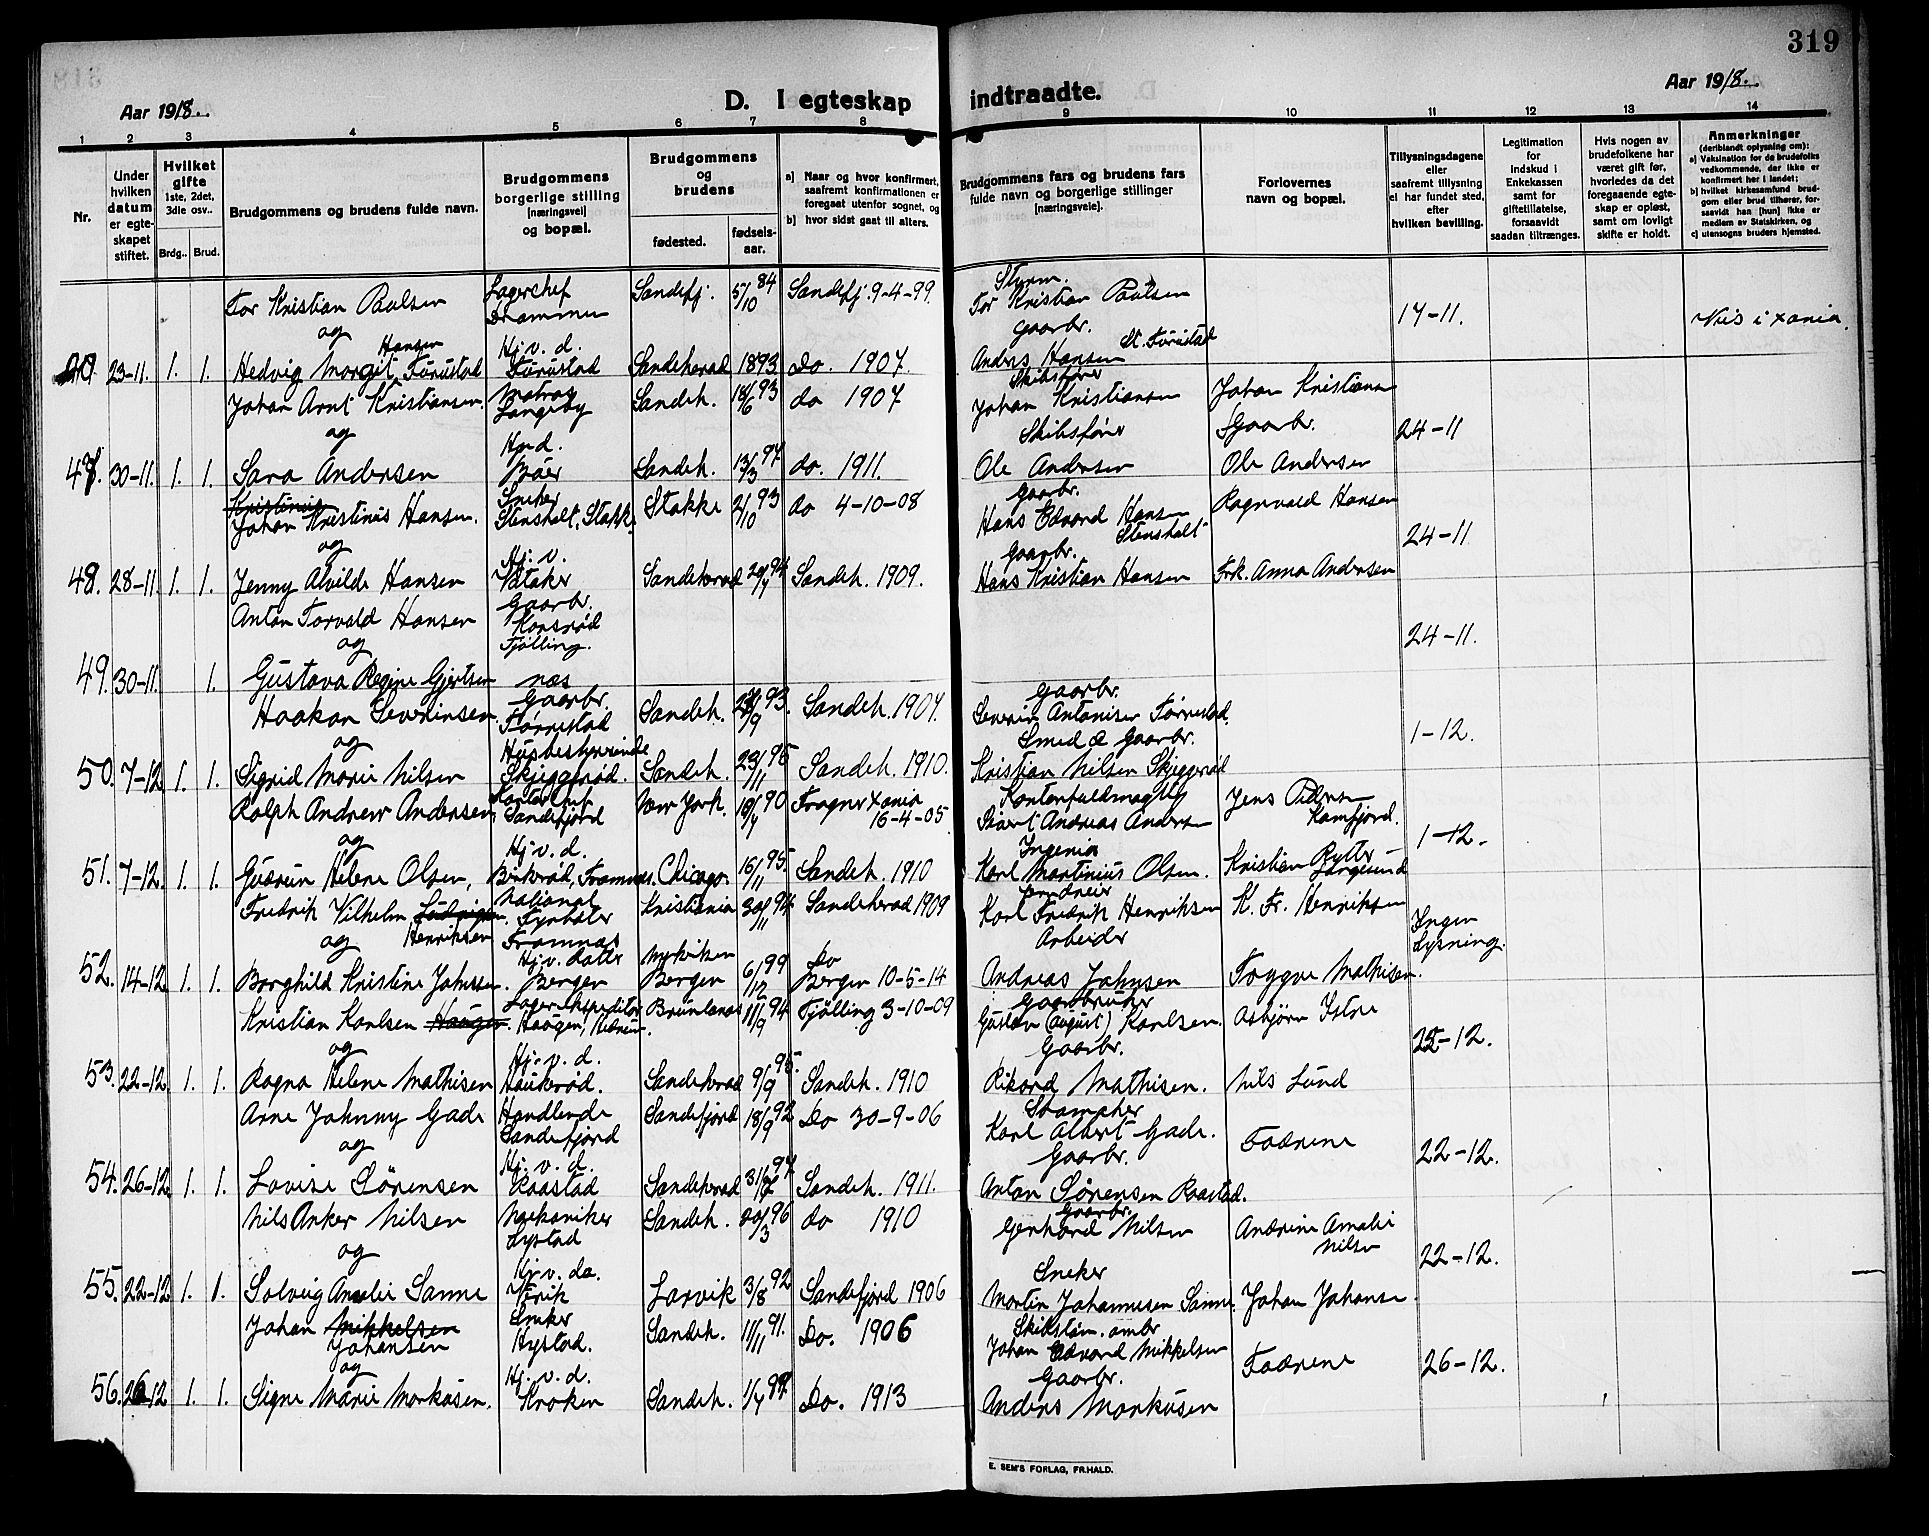 319
Aar 1918.
D. I egteskap indtraadte.
Aar 1918.
1 2 3 4 5 6 7 8 9 10 11 12 13 14
Nr.
Under hvilken datum er egteskapet stiftet.
Hvilket gifte 1ste, 2det, 3die osv..
Brdg.. Brud.
Brudgommens og brudens fulde navn.
Brudgommens borgerlige stilling [næringsvei] og bopæl.
Brudgommens og brudens
fødested.
fødselsaar.
a) Naar og hvor konfirmert, saafremt konfirmationen er foregaat utenfor sognet, og
b) hvor sidst gaat til alters.
Brudgommens fars og brudens fars fulde navn og borgerlige stillinger [næringsveie].
Forlovernes navn og bopæl.
Tillysningsdagene eller saafremt tillysning ei har fundet sted, efter hvilken bevilling.
Legitimation for indskud i Enkekassen samt for giftetillatelse, forsaavidt saadan tiltrænges.
Hvis nogen av brudefolkene har været gift før, hvorledes da det foregaaende egteskap er opløst, samt om lovligt skifte er holdt.
Anmerkninger (deriblandt oplysning om):
a) Vaksination for de brudefolks vedkommende, der ikke er konfirmert her i landet;
b) hvilket kirkesamfund brudgom eller brud tilhører, forsaavidt han [hun] ikke er medlem av Statskirken, og
c) utensogns bruders hjemsted.
Tor Kristian Paulsen Lagerchef Drammen Sandefj. 5/10 84 Sandefj. 9-4-99. Styrm. Tor Kristian Paulsen 17-11. Viis i Xania.
og
23-11. 1. 1. Hedvig Margit Hansen Furustad Hj. v. d. Furustad Sandeherad 1893 Do. 1907. Gaarbr. Anders Hansen St. Furustad
Johan Arnt Kristiansen. Matros Langeby Sandeh. 18/6 93 do 1907 Skibsfører Johan Kristiansen Johan Kristiansen 24-11
og
47. 30-11. 1. 1. Sara Andersen Hj. d. Bøer Sandeh. 13/3 97 do. 1911. Skibsfører Ole Andersen Gaarbr. Ole Andersen
Kristinius Johan Kristinus Hansen. Sneker Stensholt, Stokke Stokke 2/10 93 do 4-10-08 Gaarbr. Hans Edvard Hansen Stensholt Ragnvald Hansen 24-11
og
48. 28-11. 1. 1. Jenny Alvilde Hansen Hj. v. Vataker Sandeherad 94 Sandeh. 1909. Gaarbr. Hans Kristian Hansen Frk. Anna Andersen
Anton Torvald Hansen Gaarbr. Konsrød Tjølling. 24-11.
og
49. 30-11. 1. Gustava Regine Gjertsen næs
Haakon Severinsen. Gaarbr. Tørrestad Sandeh. 93. Sandeh. 1907. Gaarbr. Severin Antonisen Tørrestad. 1-12.
og
50. 7-12 1. 1. Sigrid Marie Nilsen Husbestyrerinde Skjeggerød. Sandeh. 23/11 95 Sandeh. 1910. Smed & Gaarbr. Kristian Nilsen Skjeggerød
Ralph Andrew Andersen Kontorchef Sandefjord New York. 90 Frogner Xania 16-4-05 Kontorfuldmægtig Sivert Andreas Andersen Jens Pedersen Kamfjord. 1-12.
og
51. 7-12. 1. 1. Gudrun Helene Olsen, Hj. v. d. Binkerød, Framnæs. Chicago. 16/11 95. Sandeh. 1910 Ingeniør Karl Martinius Olsen. Kristian Rytter Jørgsund
Fredrik Vilhelm Ludvigsen. Henriksen Fyrbøter Framnæs Kristiania 30/11 94 Sandeherad 1909 Karl Fredrik Henriksen K. Fr. Henriksen Ingen lysning.
og
52. 14-12 1. 1. Borghild Kristine Johnsen. Hj. v. datter Bergen Bergen 6/12 99 Do Bergen 10-5-14 Arbeider Andreas Johnsen Tryggve Mathisen.
Kristian Karlsen Haugen. Lagerekspeditør Haugen, Hedrum. Brunlanes 11/9 94 Tjølling 3-10-09 Gaardbruker Gustav (August) Karlsen. Asbjørn Istre 22-12.
og
53. 22-12. 1. 1. Ragna Helene Mathisen Hj. v. d. Haukerød. Sandeherad 9/9 95. Sandeh. 1910 Gaarbr. Rikard Mathisen. Nils Lund
Arne Johnny Gade Handlende Sandefjord Sandefjord 18/9 92 Do 30-9-06 Karl Albert Gade. Fædrene 22-12.
og
54. 26-12. 1. 1. Lovise Sørensen Hj. v. d. Raastad Sandeherad 97 Sandeh. 1911. Gaarbr. Anton Sørensen Raastad.
Nils Anker Nilsen Mekaniker Lystad Sandeh. 20/3 96 do 1910 Gaarbr. Gerhard Nilsen Andrine Amalie Nilsen 22-12.
og
55. 22-12 1. 1. Solveig Amalie Sanne Hj. v. da. Virik Larvik 3/8 92 Sandefjord 1906 Sneker Martin Johannesen Sanne. Johan Johansen.
Johan Mikkelsen Johansen Sneker Hystad. Sandeh. 11/11 91. Do. 1906 Skibstøm. Johan Edvard Mikkelsen Fædrene 26-12.
og
56. 26-12 1. 1. Signe Marie Markusen. Hj. v. d. Kroken Sandeh. Do. 1913 Gaarbr. Anders Markusen
E. SEM'S FORLAG, FR.HALD.